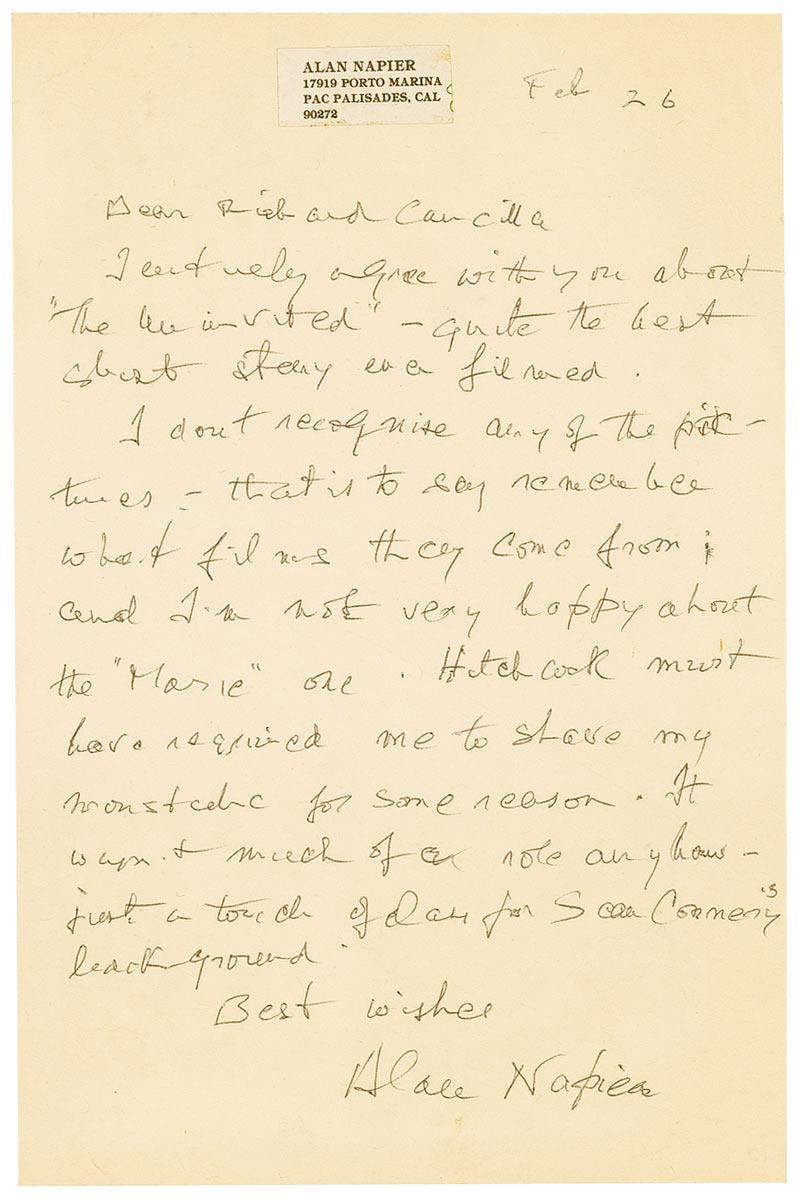 ALAN NAPIER
17919 PORTO MARINA
PAC PALISADES, CAL
90272
Feb 26
Dear Richard Cancilla
I entirely agree with you about
"The Uninvited" – quite the best
ghost story ever filmed.
I don't recognise any of the pic-
tures – that is to say remember
what films they come from;
and I'm not very happy about
the "Marnie" one. Hitchcock must
have required me to shave my
moustache for some reason. It
wasn't much of a role anyhow –
just a touch of class for Sean Connery's
background.
Best wishes
Alan Napier